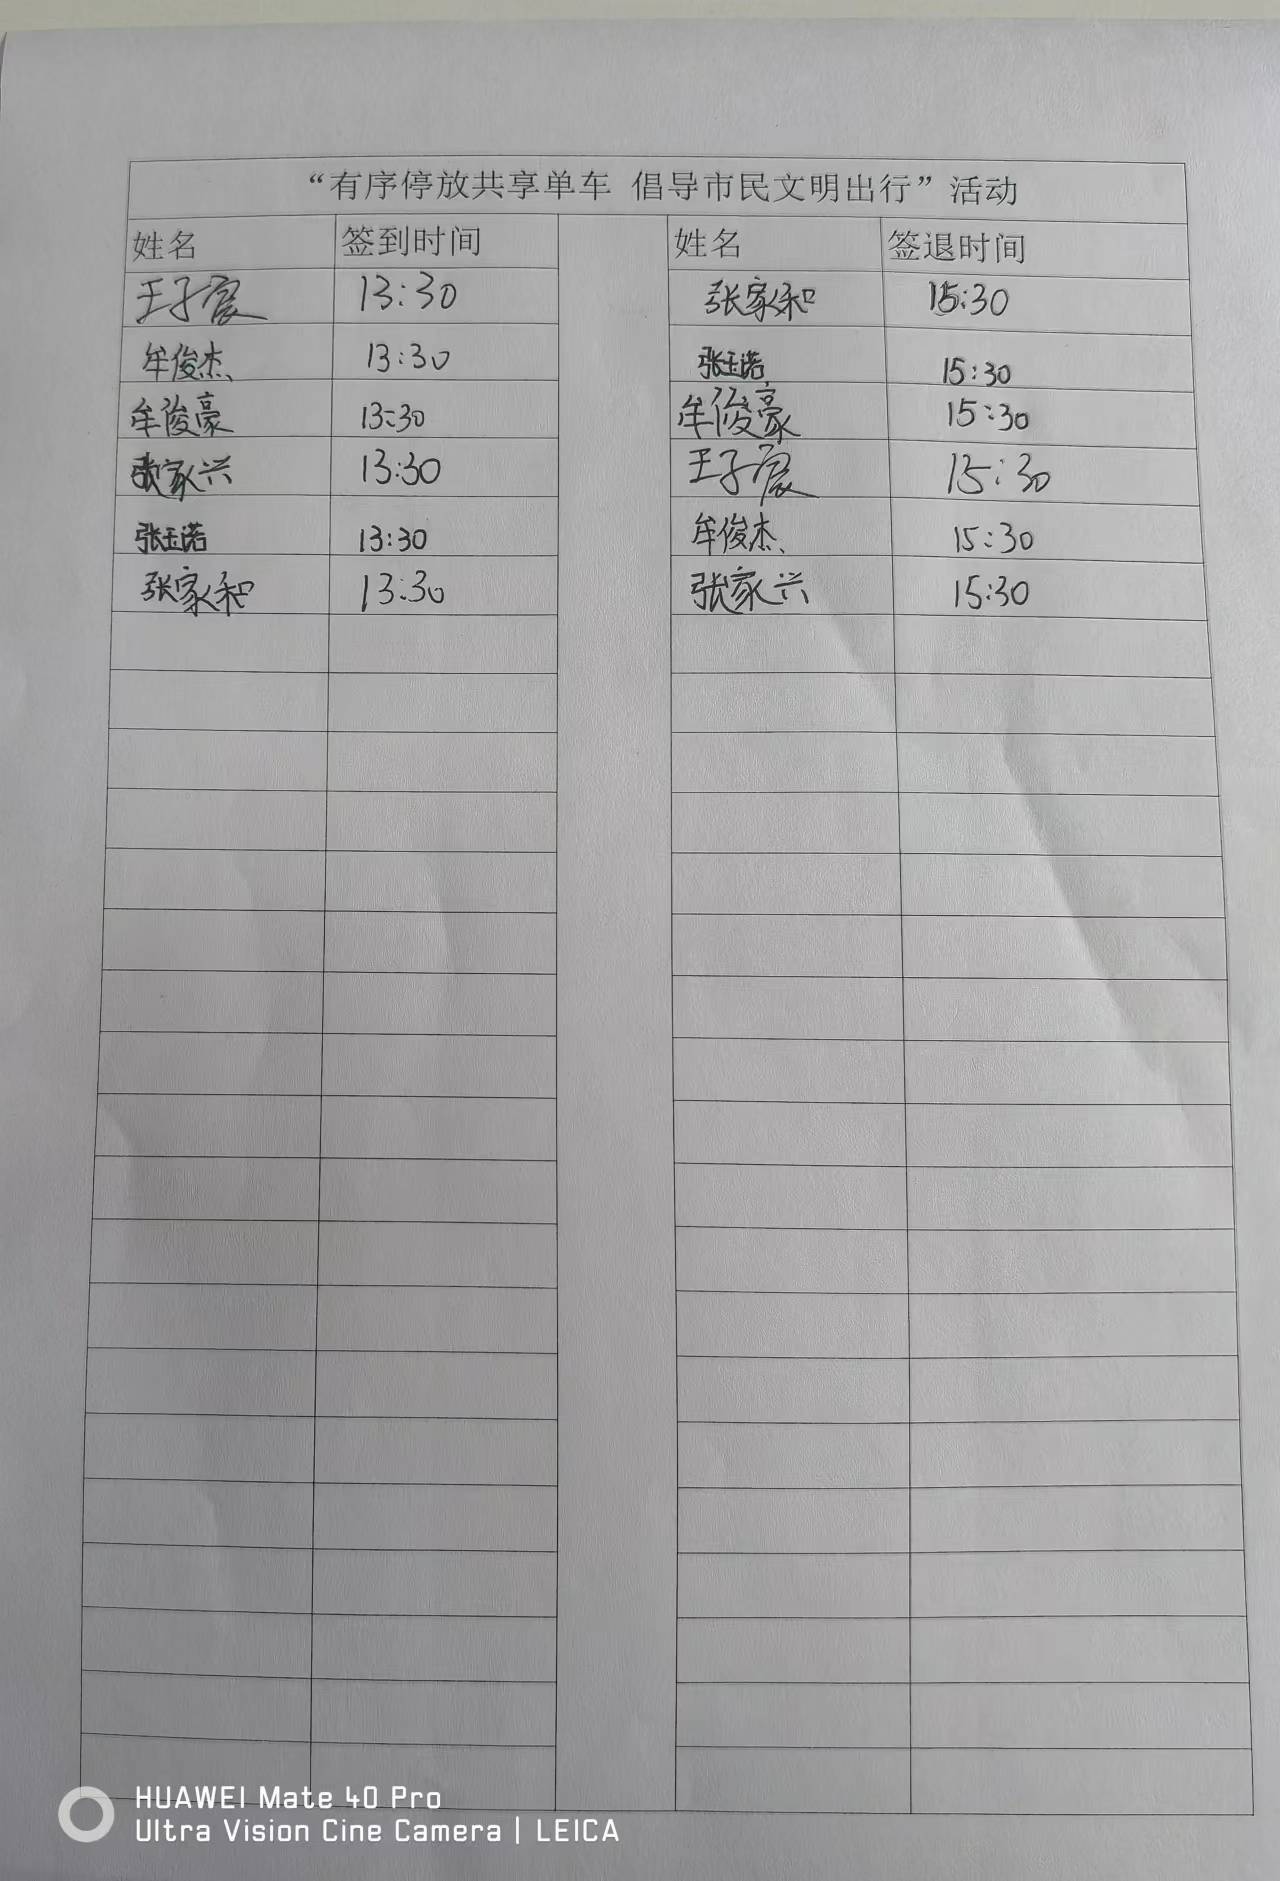 “有序停放共享单车 倡导市民文明出行”活动
姓名 签到时间 姓名 签退时间
王子宸 13:30 张家和 15:30
牟俊杰 13:30 张玉诺 15:30
牟俊豪 13:30 牟俊豪 15:30
张家兴 13:30 王子宸 15:30
张玉诺 13:30 牟俊杰 15:30
张家和 13:30 张家兴 15:30
HUAWEI Mate 40 Pro
Ultra Vision Cine Camera | LEICA